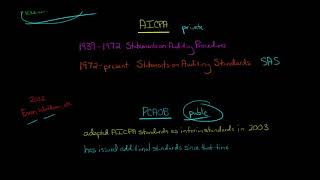 AICPA private
1939-1972 Statements on Auditing Procedures
1972-present Statements on Auditing Standards SAS
2002
Enron, WorldCom, etc
PCAOB public
adopted AICPA standards as interim standards in 2003
has issued additional standards since that time